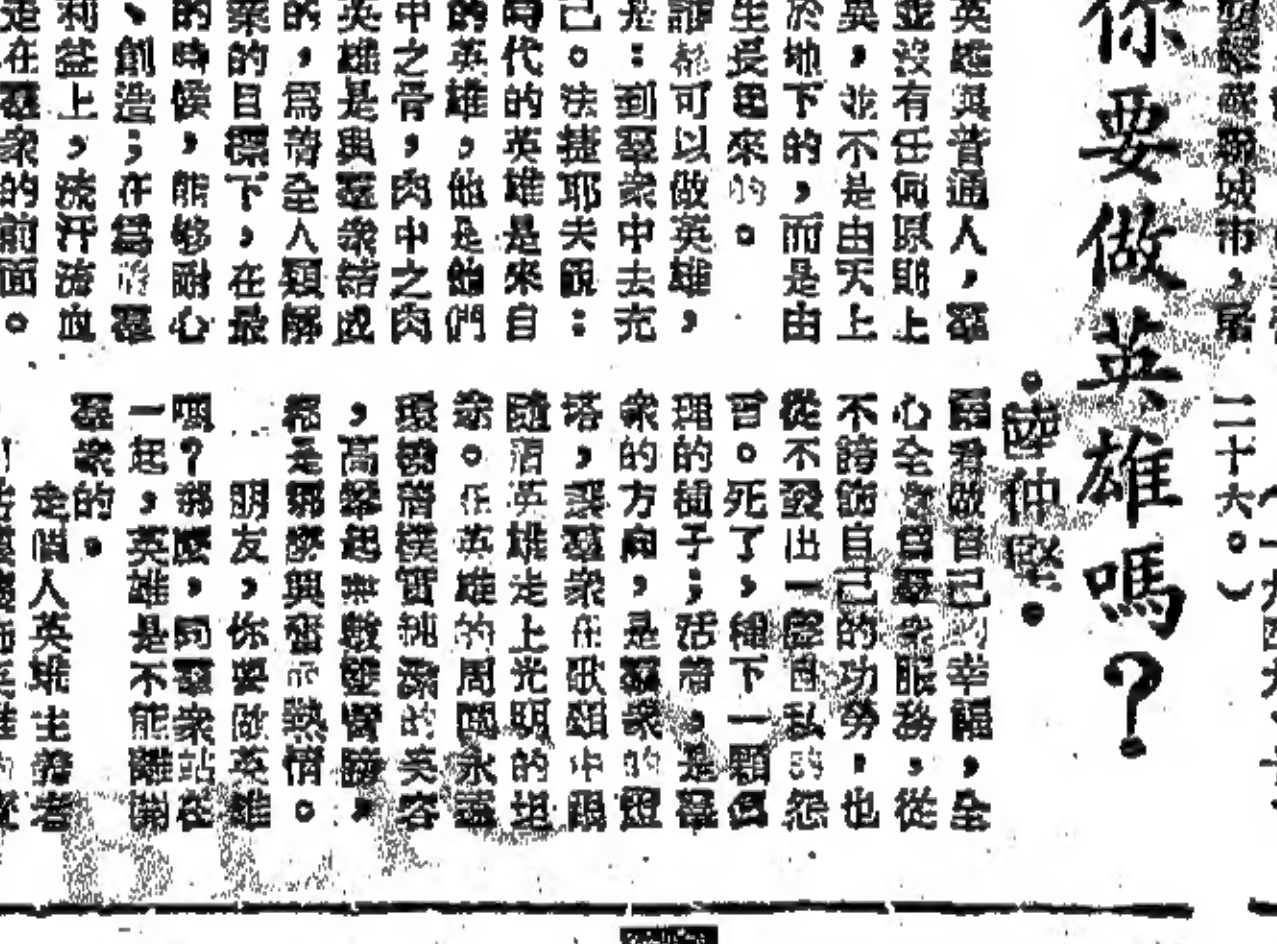 二十六。）
你要做英雄嗎？
•陸仲堅•
英雄與普通人，羣
並沒有任何原則上
異，並不是由天上
於地下的，而是由
生長起來的。
誰都可以做英雄，
是：到羣衆中去充
己。法捷耶夫說：
時代的英雄是來自
的英雄，他是他們
中之骨，肉中之肉
英雄是與羣衆結成
的，爲着全人類解
業的目標下，在最
的時候，能够耐心
、創造；在爲着羣
利益上，流汗流血
走在羣衆的前面。
做自己的幸福，全
心全意爲羣衆服務，從
不誇飾自己的功勞，也
從不發出一聲自私的怨
言。死了，種下一顆
理的種子；活着，是羣
衆的方向，是羣衆的燈
塔，羣衆在歌頌中跟
隨着英雄走上光明的坦
途。在英雄的周圍永遠
環繞着樸實純潔的笑容
，高舉起無數雙臂膀，
都是那樣興奮的熱情。
朋友，你要做英雄
嗎？那麼，同羣衆站在
一起，英雄是不能離開
羣衆的。
走個人英雄主義者